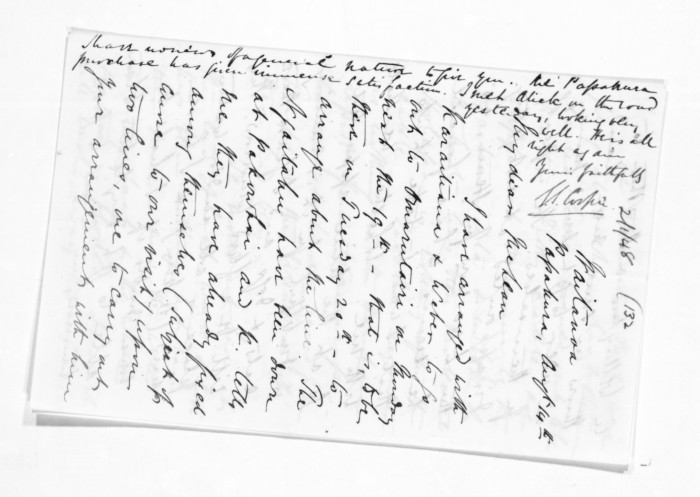 Waitanoa
Papakura, Augt 14th
My dear McLean
I have arranged with
Karaitiana & to go
out to on Monday
next the 19th - that is, to be
there on Tuesday 20th - to
arrange about the line. The
Ngaitahu have been down
at Pakowhai and K. tells
me they have already fixed
among themselves (subject of
course to our visit) upon
two lines, one to carry out
your arrangements with him
news of a general nature to give you. The Papakura
purchase has given immense satisfaction. I met Alick on the road
yesterday, looking very
well. He is all
right again
Yours faithfully
G. S. Cooper
2/1/48
(132